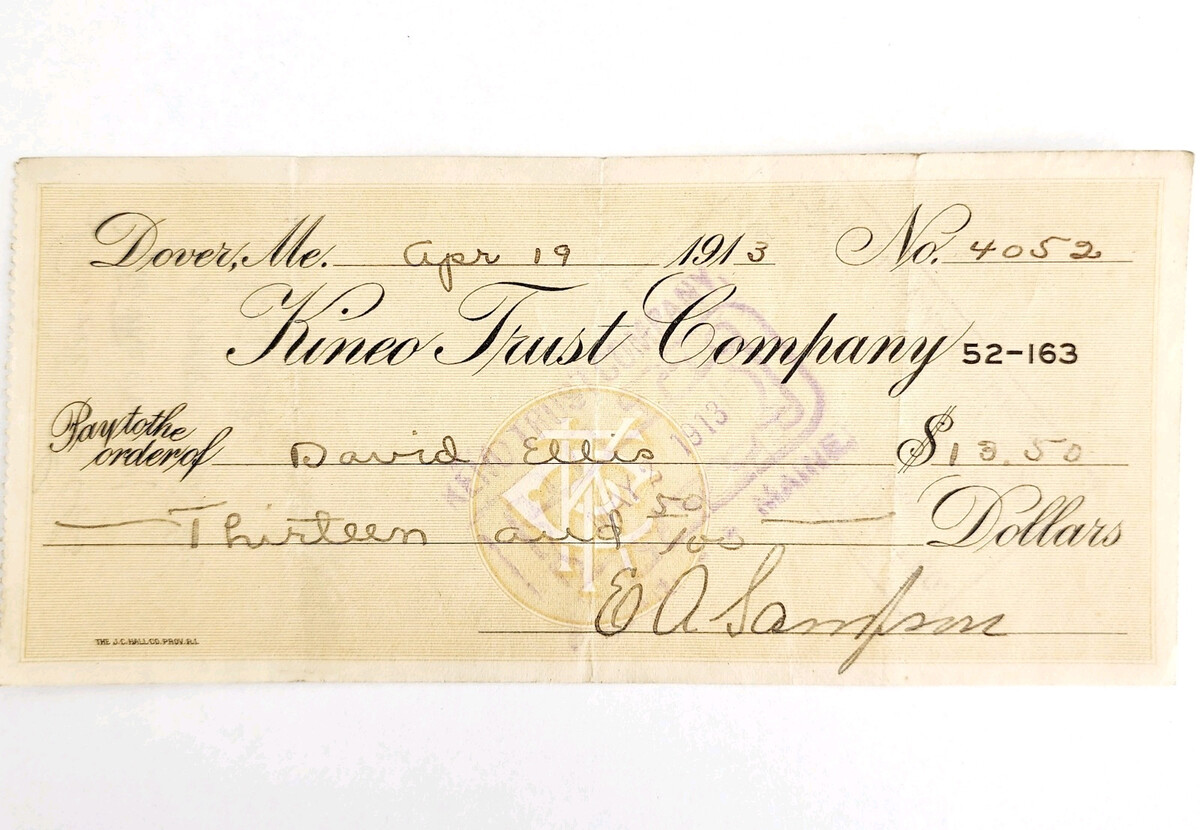 Dover, Me. Apr 19 1913 No. 4052
Kineo Trust Company 52-163
Pay to the order of David Ellis $13.50
Thirteen and 50/100 Dollars
E A Sampson
THE J.C. HALL CO. PROV. R.I.
KINEO TRUST COMPANY,
MAY 2 1913
MAINE
KTC